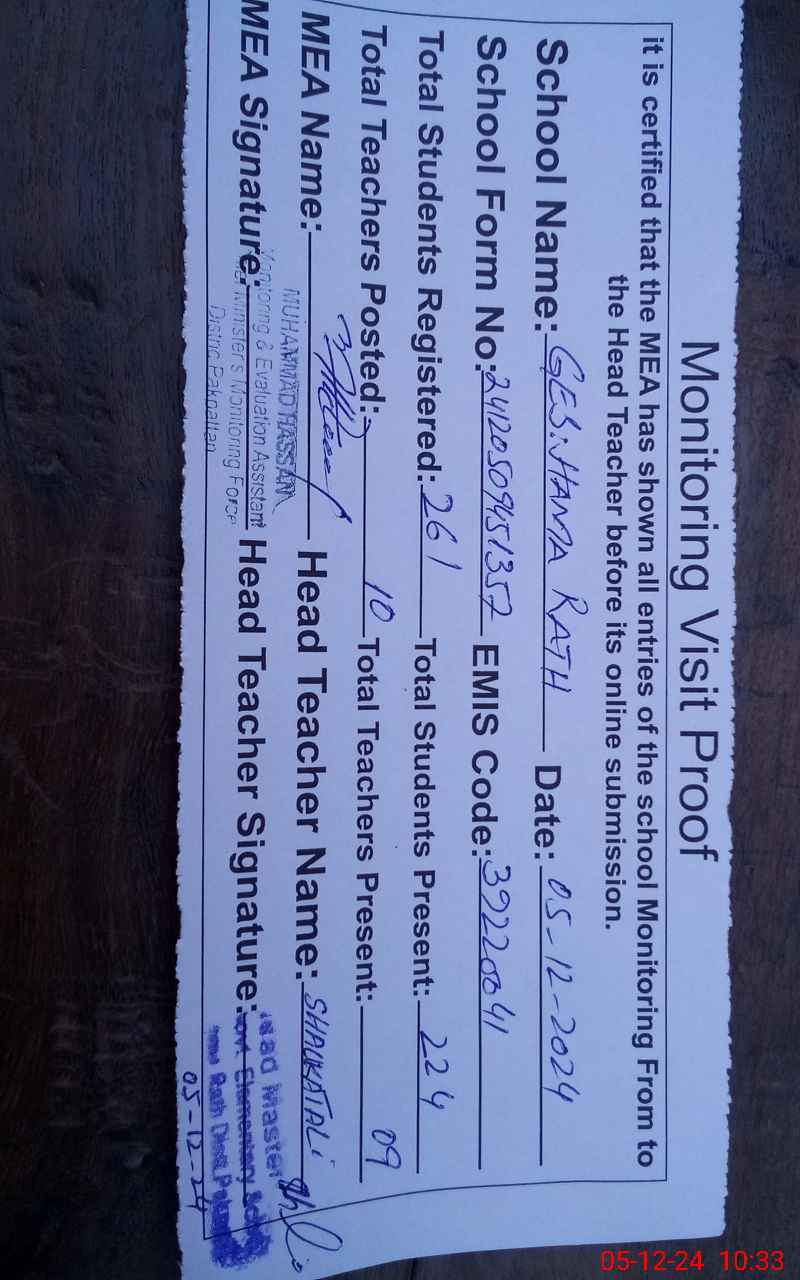 Monitoring Visit Proof
it is certified that the MEA has shown all entries of the school Monitoring From to
the Head Teacher before its online submission.
School Name: GES. HANA RATH Date: 05-12-2024
School Form No: 24120509451357 EMIS Code: 39220041
Total Students Registered: 261 Total Students Present: 224
Total Teachers Posted: 10 Total Teachers Present: 09
MEA Name: Head Teacher Name: SHAUKAT ALI
MUHAMMAD HASSAN
MEA Signature: Head Teacher Signature:
Monitoring & Evaluation Assistant
Minister's Monitoring Force
Distric Pakpattan
Head Master
Govt. Elementary
Rath Distt.
05-12-24
05-12-24 10:33